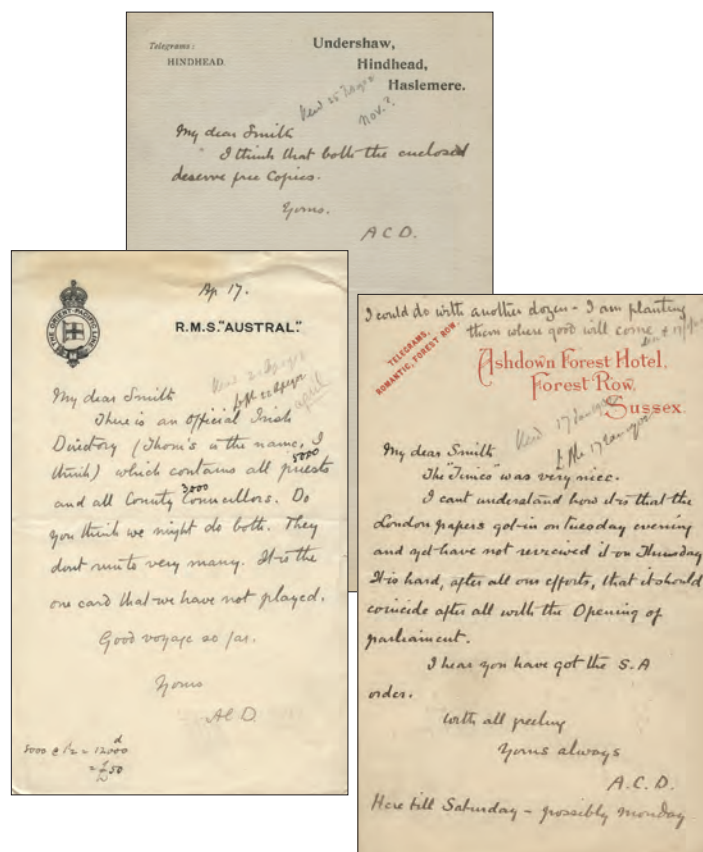 Telegrams:
HINDHEAD.
Undershaw,
Hindhead,
Haslemere.
Nov.?
My dear Smith
I think that both the enclosed
deserve free Copies.
Yours.
A C D.
THE ORIENT-PACIFIC LINE
Ap 17.
R.M.S. "AUSTRAL."
april
My dear Smith
There is an Official Irish
Directory (Thom's is the name, I
5000
think) which contains all priests
3000
and all County Councillors. Do
you think we might do both. They
dont run to very many. It is the
one card that we have not played.
Good voyage so far.
Yours
AC D.
d
= £50
I could do with another dozen - I am planting
them where good will come
TELEGRAMS,
ROMANTIC, FOREST ROW.
Ashdown Forest Hotel,
Forest Row,
Sussex.
My dear Smith
The "Times" was very nice.
I cant understand how it is that the
London papers got it in on tuesday evening
and yet have not reviewed it on Thursday
It is hard, after all our efforts, that it should
coincide after all with the Opening of
parliament.
I hear you have got the S.A
order.
With all greeting
Yours always
A.C.D.
Here till Saturday - possibly monday